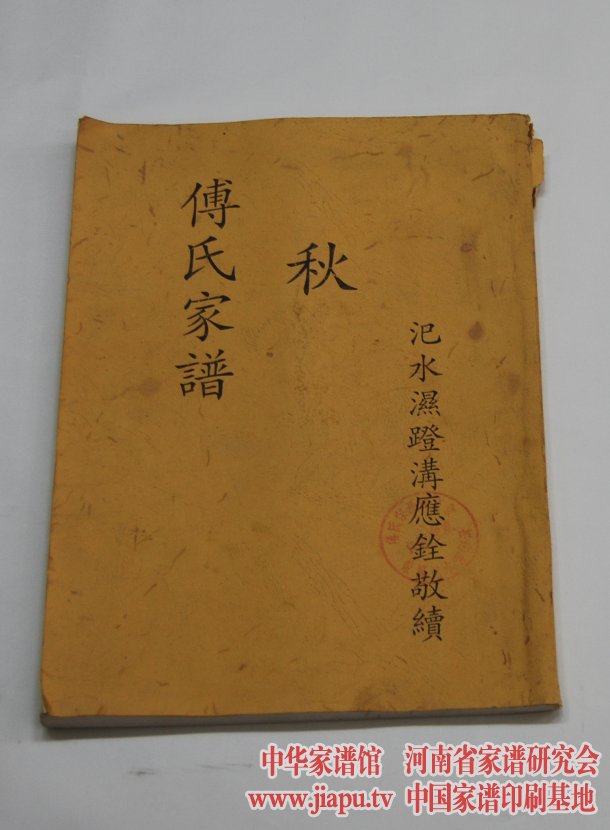 傅氏家譜
秋
汜水濕蹬溝應銓敬續
中华家谱馆 河南省家谱研究会
www.jiapu.tv 中国家谱印刷基地